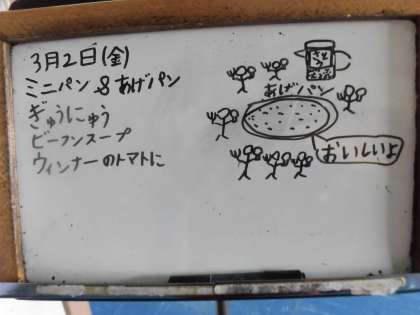 3月2日(金)
ミニパン & あげパン
ぎゅうにゅう
ビーフンスープ
ウィンナーのトマトに
あげパン
おいしいよ